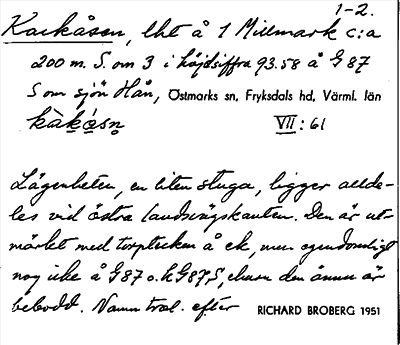 1-2.
Kackåsen, lht å 1 Millmark c:a
200 m. S. om 3 i höjdsiffra 93.58 å G 87
S om sjön Hån, Östmarks sn, Fryksdals hd, Värml. län
VII : 61
Lägenheten, en liten stuga, ligger allde-
les vid östra landsvägskanten. Den är ut-
märket med torptecken å ek, men egendomligt
nog icke å G 87 o. h G 87, S, ehuru den ännu är
bebodd. Namn tral. efter RICHARD BROBERG 1951